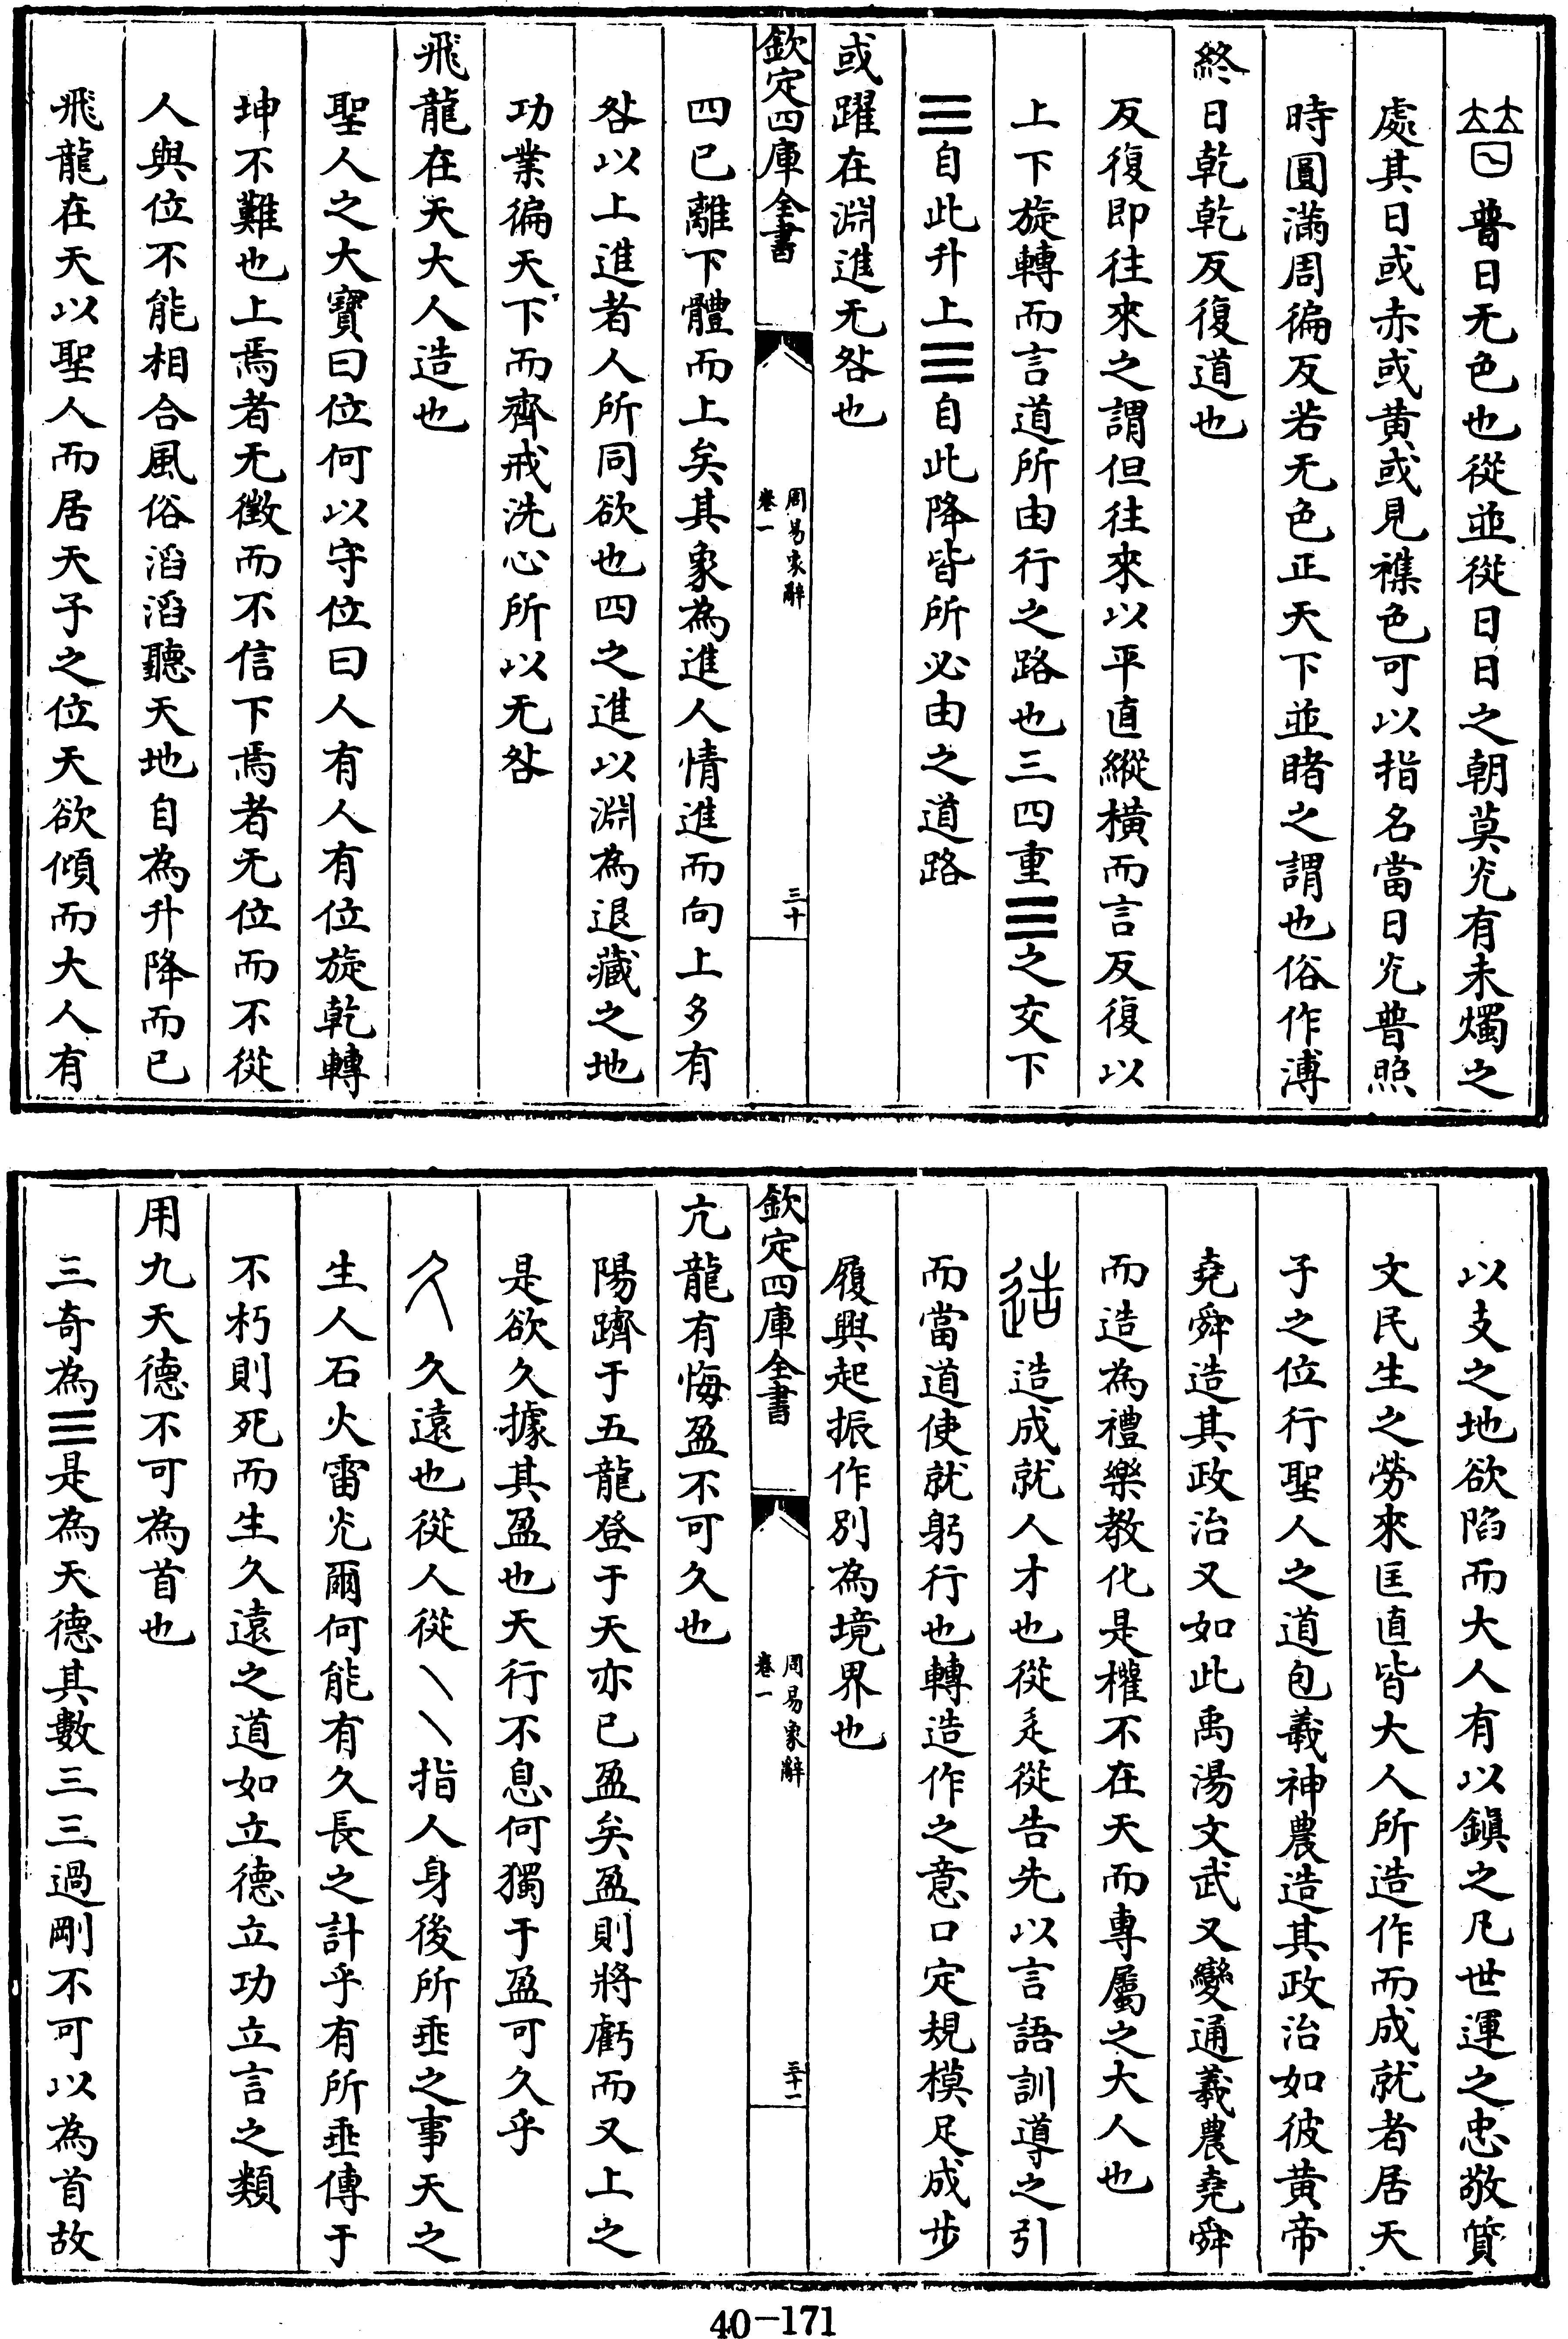 普日无色也從並從日日之朝莫光有未燭之
處其日或赤或黄或見襍色可以指名當日光普照
時圓滿周徧反若无色正天下並睹之謂也俗作溥
終日乾乾反復道也
反復即往來之謂但往來以平直縱橫而言反復以
上下旋轉而言道所由行之路也三四重☰之交下
☰自此升上☰自此降皆所必由之道路
或躍在淵進无咎也
欽定四庫全書
周易象辭
卷一
三十
四已離下體而上矣其象為進人情進而向上多有
咎以上進者人所同欲也四之進以淵為退藏之地
功業徧天下而齊戒洗心所以无咎
飛龍在天大人造也
聖人之大寳曰位何以守位曰人有人有位旋乾轉
坤不難也上焉者无徵而不信下焉者无位而不從
人與位不能相合風俗滔滔聽天地自為升降而已
飛龍在天以聖人而居天子之位天欲傾而大人有
以支之地欲陷而大人有以鎭之凡世運之忠敬質
文民生之勞來匡直皆大人所造作而成就者居天
子之位行聖人之道包羲神農造其政治如彼黄帝
堯舜造其政治又如此禹湯文武又變通羲農堯舜
而造為禮樂教化是權不在天而專屬之大人也
造成就人才也從辵從告先以言語訓導之引
而當道使就躬行也轉造作之意口定規模足成步
履興起振作别為境界也
欽定四庫全書
周易象辭
卷一
三十一
亢龍有悔盈不可久也
陽躋于五龍登于天亦已盈矣盈則將虧而又上之
是欲久據其盈也天行不息何獨于盈可久乎
久久遠也從人從乀乀指人身後所垂之事天之
生人石火雷光爾何能有久長之計乎有所垂傳于
不朽則死而生久遠之道如立德立功立言之類
用九天德不可為首也
三奇為☰是為天德其數三三過剛不可以為首故
40-171